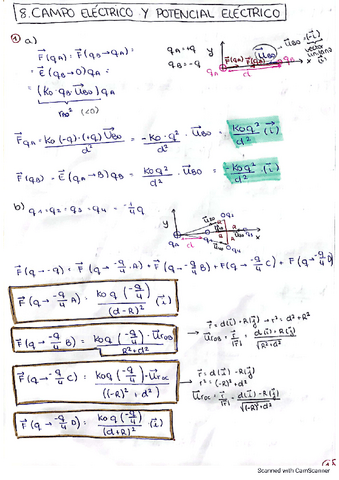 8. CAMPO ELÉCTRICO Y POTENCIAL ELÉCTRICO
① a)
F⃗(qA) = F⃗(qB→qA) =
= E⃗(qB→0) qA =
= (k0·qB·U⃗BO) qA
r²BO (<0)
qA = +q
qB = -q
y F⃗(qA) F⃗(qB) x
qA d qB
U⃗BO = (i⃗)
vector
unitario
F⃗qA = k0(-q)·(+q) U⃗BO / d² = -k0·q² / d² · U⃗BO = k0q² / d² (i⃗)
F⃗(qB) = E⃗(qA→B) qB = k0q² / d² · U⃗BO = -k0q² / d² · (i⃗)
b) q1 = q2 = q3 = q4 = -1/4 q
F⃗(q→-q) = F⃗(q→-q/4 A) + F⃗(q→-q/4 B) + F(q→-q/4 C) + F(q→-q/4 D)
F⃗(q→-q/4 A) = k0 q (-q/4) / (d-R)² (i⃗)
F⃗(q→-q/4 B) = k0 q (-q/4)·U⃗rOB / R²+d²
→ r⃗ = d(i⃗) + R(j⃗) → r² = d²+R²
U⃗rOB = r⃗/|r⃗| = d(i⃗)+R(j⃗) / √R²+d²
F⃗(q→-q/4 C) = k0 q (-q/4)·U⃗rOC / ((-R)²+d²)
→ r⃗ = d(i⃗) - R(j⃗)
r² = (-R)²+d²
U⃗rOC = r⃗/|r⃗| = d(i⃗)-R(j⃗) / √(-R)²+d²
F⃗(q→-q/4 D) = k0 q (-q/4) / (d+R)² (i⃗)
Scanned with CamScanner